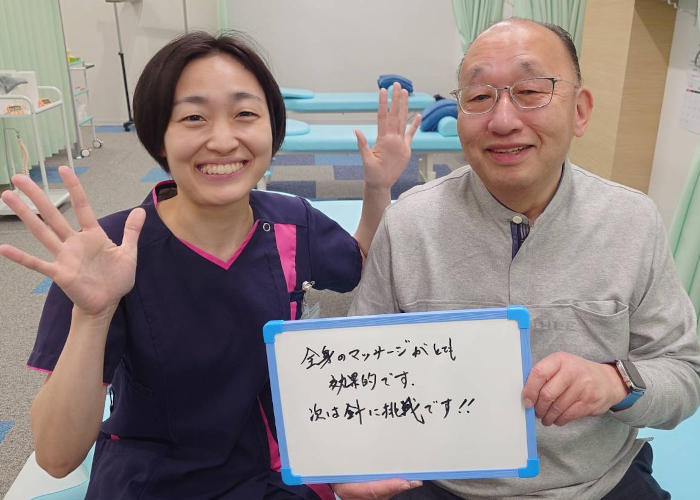 全身のマッサージがとても
効果的です.
次は針に挑戦です!!